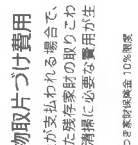 物取片づけ費用
が支払われる場合で、
た残存家財の取りこわ
清掃に必要な費用が生
つき家財保険金 10%限度